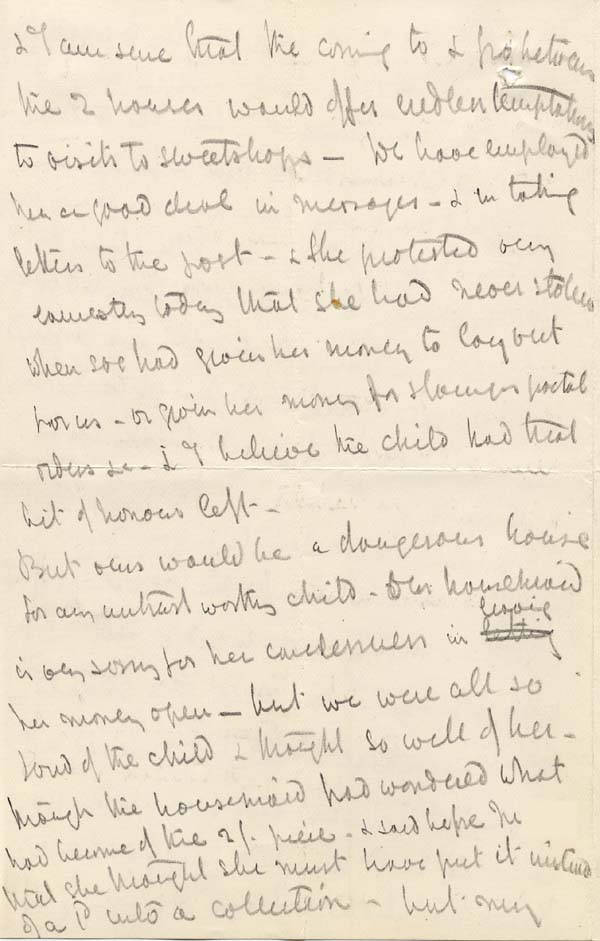 & I am sure that the coming to & fro between
the 2 houses would offer endless temptations
to visits to sweetshops – We have employed
her a good deal in messages – & in taking
letters to the post – & she protested very
earnestly today that she had never stolen
when we had given her money to lay out
for us – or given her money for stamps postal
orders &c – & I believe the child had that
bit of honour left –
But ours would be a dangerous house
for any untrustworthy child – Our housemaid
is very sorry for her carelessness in leaving
her money open – but we were all so
fond of the child & thought so well of her –
though the housemaid had wondered what
had become of the 2/- piece – & said before
that she thought she must have put it instead
of a 1d into a collection – but very